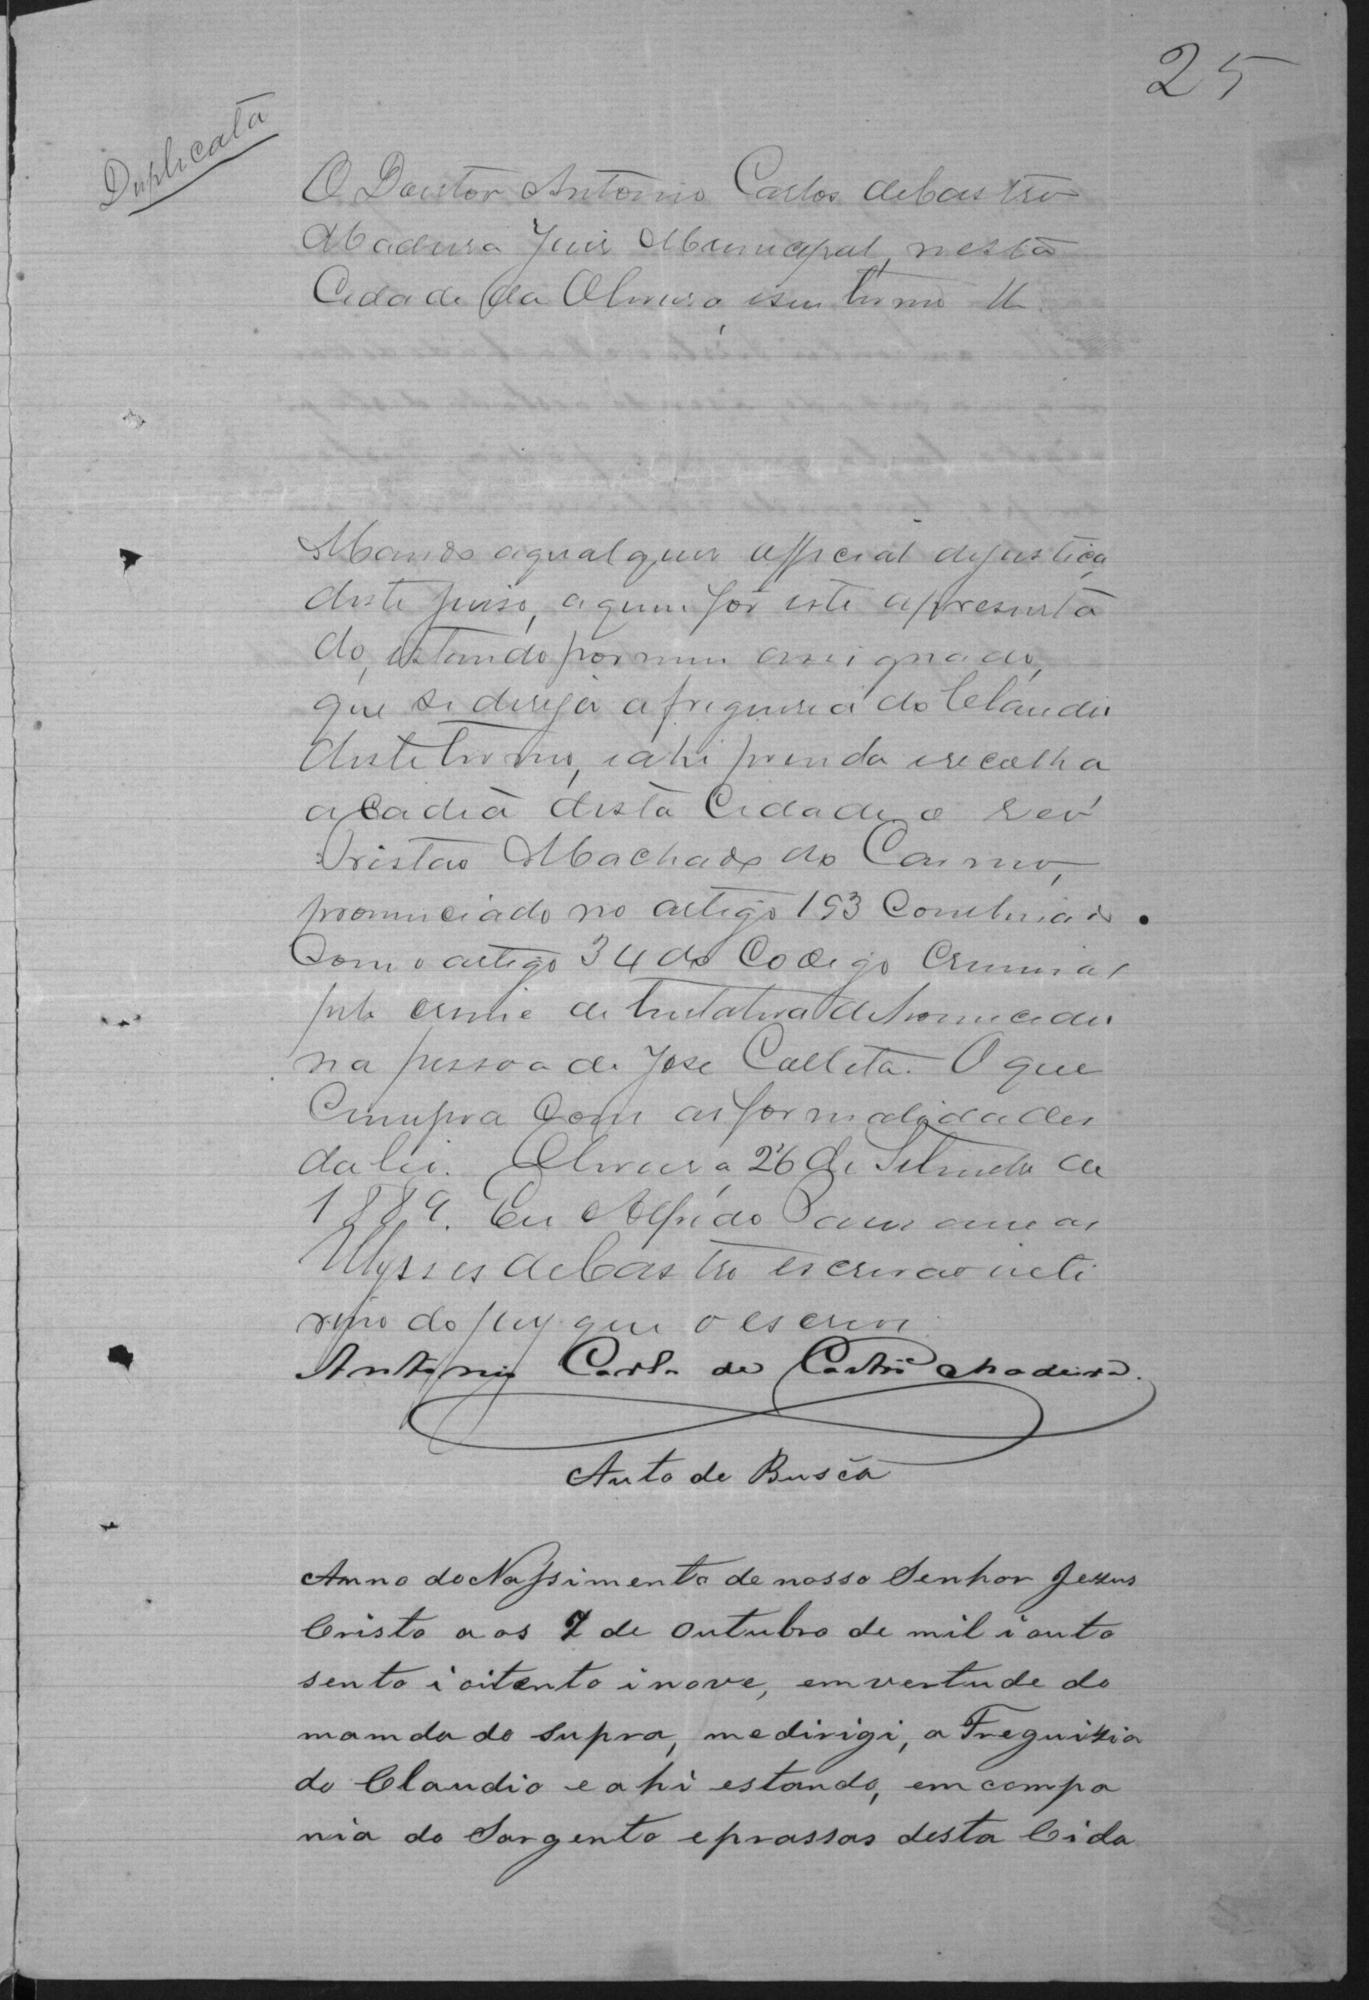 25
Duplicata
O Doutor Antonio Carlos de Castro
Madeira Juis Municipal, nesta
Cidade da Oliveira, e seu termo &
Mando a qualquer official de justiça
deste juiso, a quem for este apresenta
do, estando por mim assignado,
que se dirija a freguesia do Claudio
deste termo, e ahi prenda e recolha
a cadia desta Cidade o reo
Tristão Machado do Carmo,
pronunciado no artigo 193 combinado
com o artigo 34 do Codigo Criminal
pelo crime de tentativa de homicidio
na pessoa de Jose Calleta. O que
Cumpra com as formalidades
da lei. Oliveira, 26 de Setembro de
1889. Eu Alfredo
Ulysses de Castro escrivão inte
rino do jury que o escrevi
Antonio Carlos de Castro Madeira.
Auto de Busca
Anno do Nassimento de nosso Senhor Jezus
Cristo a os 7 de outubro de mil i outo
sento i oitento i nove, em vertude do
mamdado supra, me dirigi, a Freguizia
do Claudio e ahi estando, em compa
nia do Sargento e prassas desta Cida